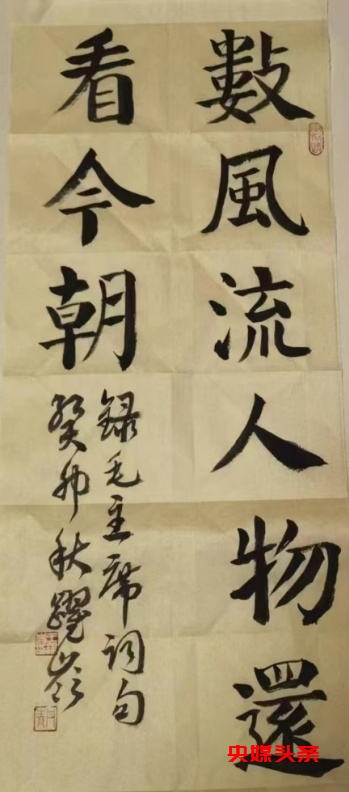 數風流人物還
看今朝
録毛主席词句
癸卯秋躍嶺
央媒头条